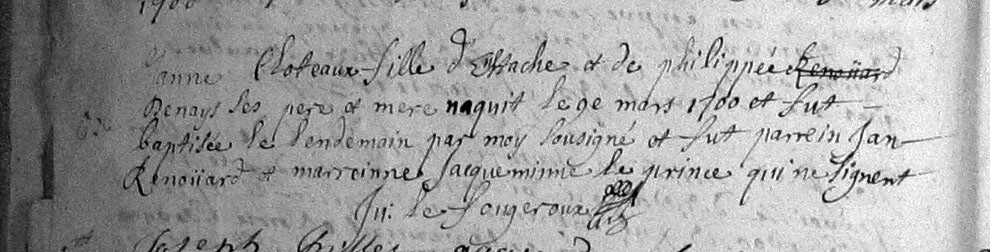 1700 mars
Janne Choteaux fille d'Estache et de philippée Renoüard
Denays ses pere et mere naquit le 9e mars 1700 et fut
baptisée le lendemain par moy sousigné et fut parrein Jan
Renoüard et marreinne Jacqueminne le prince qui ne signent
Ju: le fougeroux
Joseph